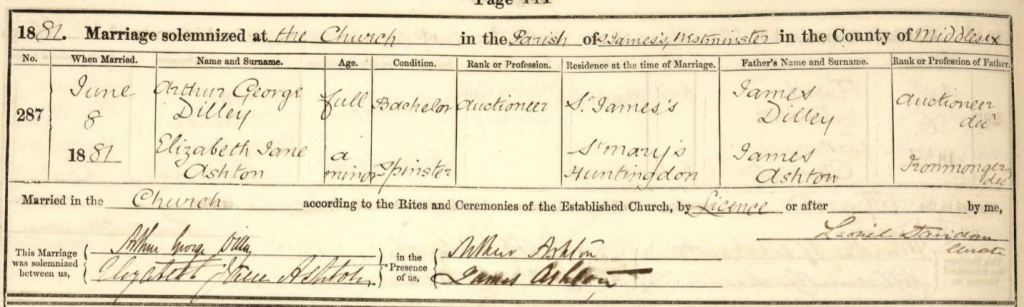 Page 144
1881. Marriage solemnized at the Church in the Parish of St James's, Westminster in the County of Middlesex
No. When Married. Name and Surname. Age. Condition. Rank or Profession. Residence at the time of Marriage. Father's Name and Surname. Rank or Profession of Father.
287 June 8 1881
Arthur George Dilley full Bachelor Auctioneer St James's James Dilley Auctioneer decd
Elizabeth Jane Ashton a minor Spinster St Mary's Huntingdon James Ashton Ironmonger decd
Married in the Church according to the Rites and Ceremonies of the Established Church, by Licence or after by me,
Curate
This Marriage was solemnized between us, Arthur George Dilley Elizabeth Jane Ashton in the Presence of us, Arthur Ashton James Ashton